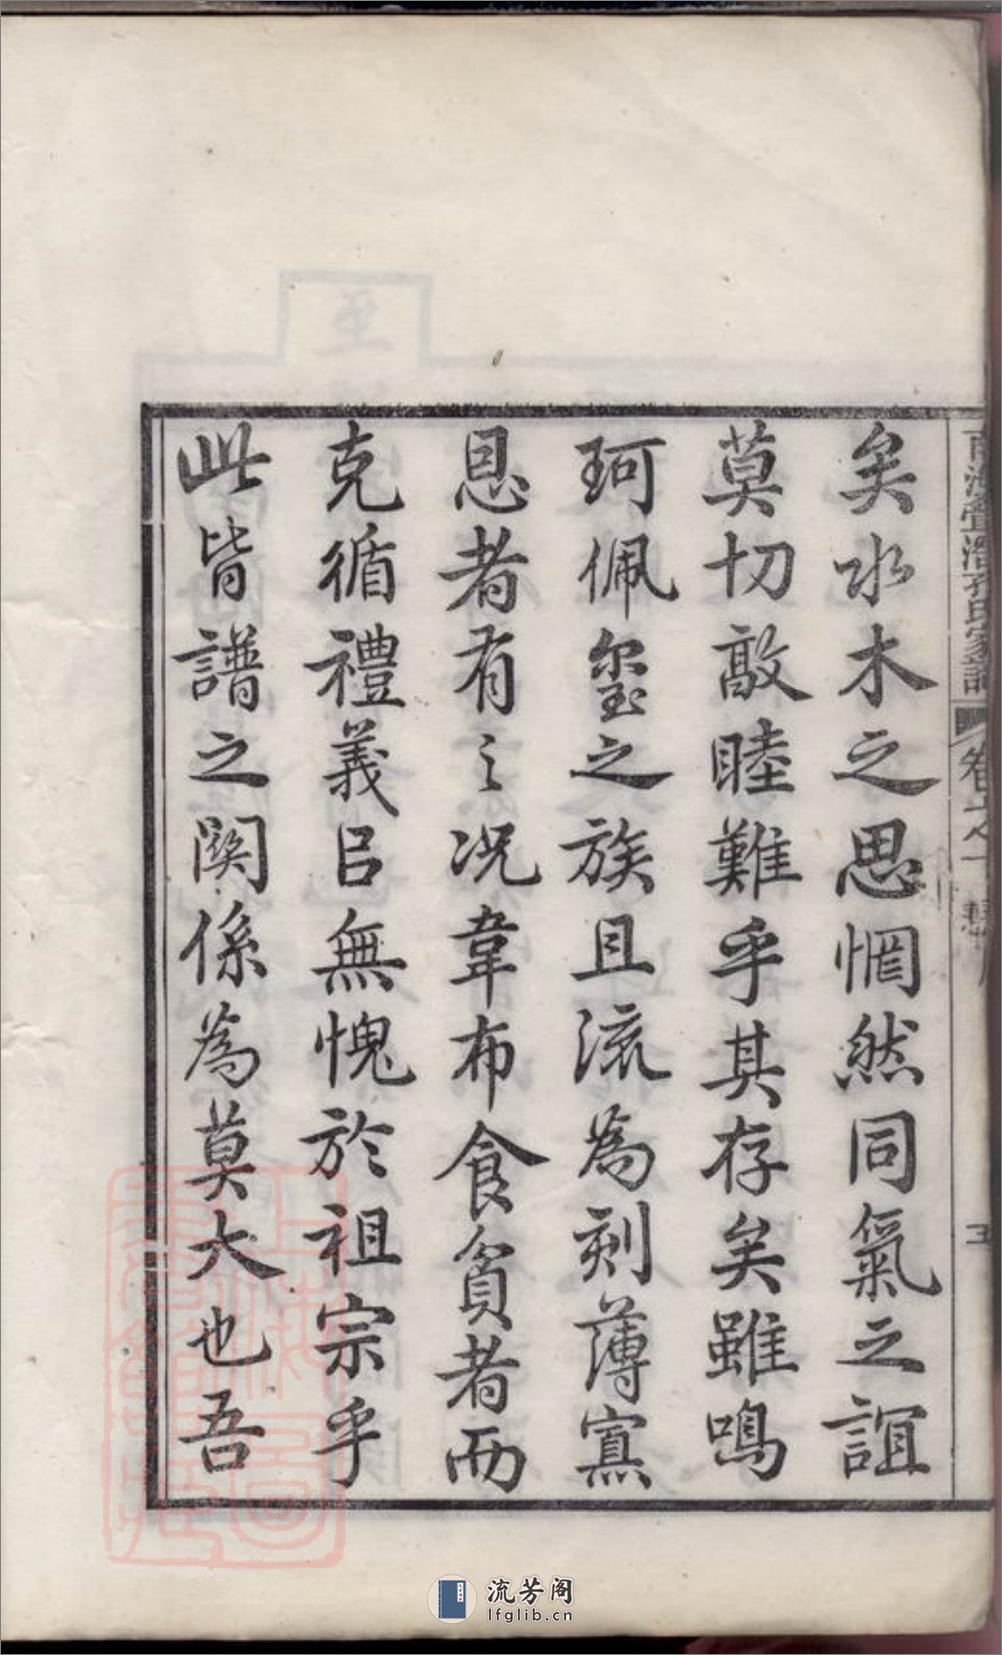 矣水木之思惘然同氣之誼
莫切敦睦難乎其存矣雖鳴
珂佩璽之族且流為刻薄寡
恩者有之況韋布食貧者而
克循禮義㠯無愧於祖宗乎
此皆譜之関係為莫大也吾
南海疊滘孔氏家譜
卷之一
五
流芳阁
lfglib.cn